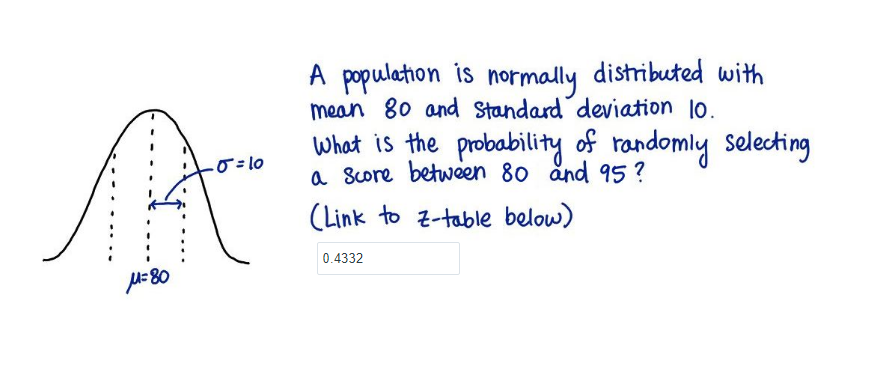 A population is normally distributed with
mean 80 and Standard deviation 10.
What is the probability of randomly selecting
a Score between 80 and 95?
(Link to z-table below)
0.4332
σ=10
μ=80